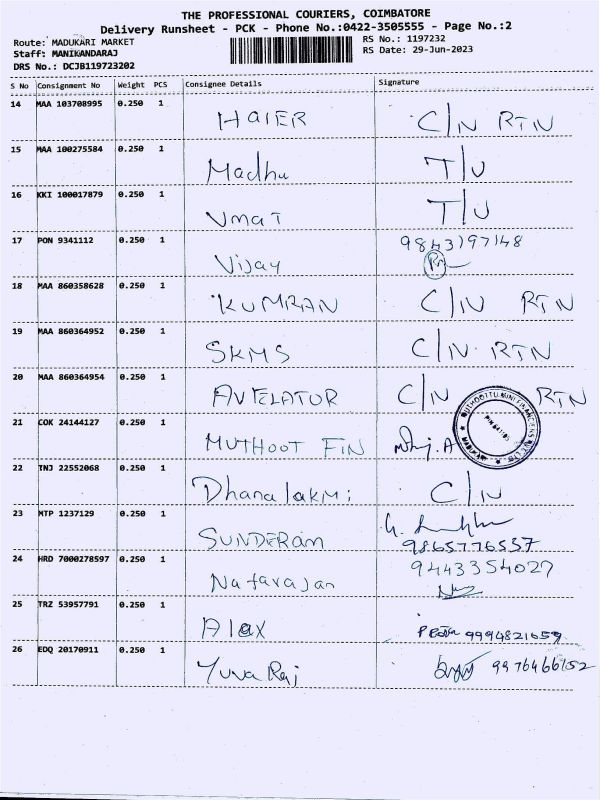 THE PROFESSIONAL COURIERS, COIMBATORE
Delivery Runsheet - PCK - Phone No.:0422-3505555 - Page No.:2
Route: MADUKARI MARKET RS No.: 1197232
Staff: MANIKANDARAJ RS Date: 29-Jun-2023
DRS No.: DCJB119723202
S No Consignment No Weight PCS Consignee Details Signature
14 MAA 103708995 0.250 1 HAIER C/N RTN
15 MAA 100275584 0.250 1 Madhu T/U
16 KKI 100017879 0.250 1 Umat T/U
17 PON 9341112 0.250 1 Vijay 9843197148
18 MAA 860358628 0.250 1 KUMRAN C/N RTN
19 MAA 860364952 0.250 1 SKMS C/N RTN
20 MAA 860364954 0.250 1 AVELATOR C/N RTN
21 COK 24144127 0.250 1 MUTHOOT FIN
22 TNJ 22552068 0.250 1 Dhanalakmi C/N
23 MTP 1237129 0.250 1 SUNDERam 9865776557
24 HRD 7000278597 0.250 1 Natarajan 9443354027
25 TRZ 53957791 0.250 1 Alex 9994821659
26 EDQ 20170911 0.250 1 Yuva Raj 9976466152